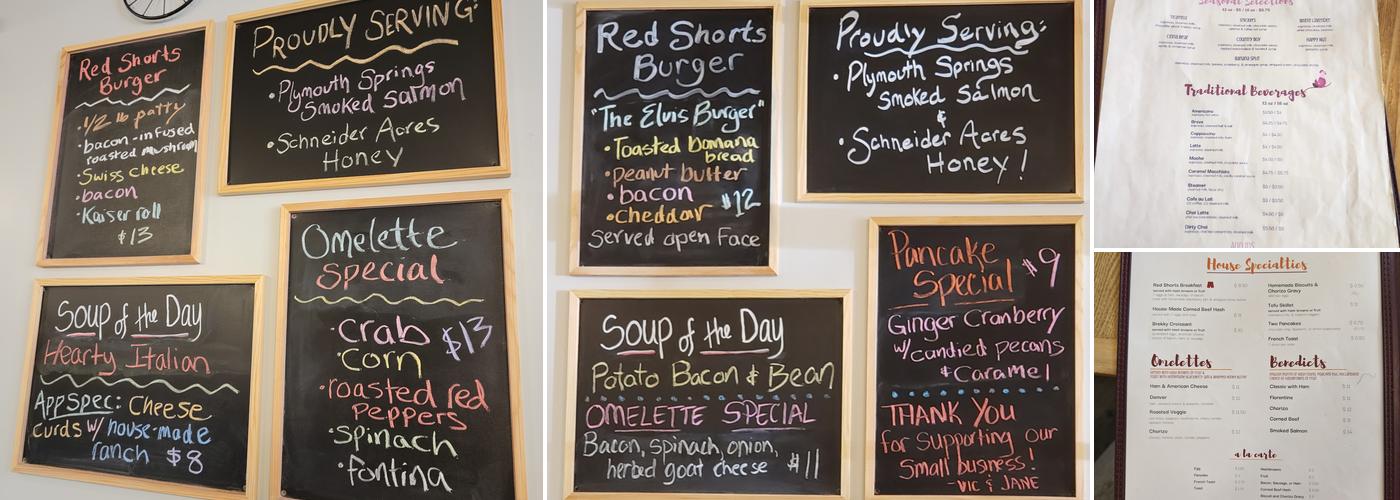 Red Shorts
Burger
·1/2 lb patty
·bacon-infused
roasted mushroom
·Swiss cheese
·bacon
·Kaiser roll
$13
PROUDLY SERVING:
·Plymouth Springs
Smoked Salmon
·Schneider Acres
Honey
Soup of the Day
Hearty Italian
App Spec: Cheese
Curds w/ house-made
ranch $8
Omelette
Special
·Crab $13
·Corn
·roasted red
peppers
·Spinach
·fontina
Red Shorts
Burger
"The Elvis Burger"
·Toasted banana
bread
·peanut butter
·bacon $12
·cheddar
Served open face
Proudly Serving:
·Plymouth Springs
Smoked Salmon
&
·Schneider Acres
Honey!
Soup of the Day
Potato Bacon & Bean
OMELETTE SPECIAL
Bacon, spinach, onion,
herbed goat cheese $11
Pancake
Special $9
Ginger Cranberry
w/candied pecans
& Caramel
THANK YOU
for supporting our
Small business!
-VIC & JANE
Seasonal Selections
Traditional Beverages
12 oz / 16 oz
Americano
Breve
Cappuccino
Latte
Mocha
Caramel Macchiato
Steamer
Cafe au Lait
Chai Latte
Dirty Chai
House Specialties
Red Shorts Breakfast
served with hash browns or fruit
House Made Corned Beef Hash
Brekky Croissant
served with hash browns or fruit
Homemade Biscuits &
Chorizo Gravy
Tofu Skillet
served with hash browns or fruit
Two Pancakes
French Toast
Omelettes
Ham & American Cheese
Denver
Roasted Veggie
Chorizo
Benedicts
Classic with Ham
Florentine
Chorizo
Corned Beef
Smoked Salmon
a la carte